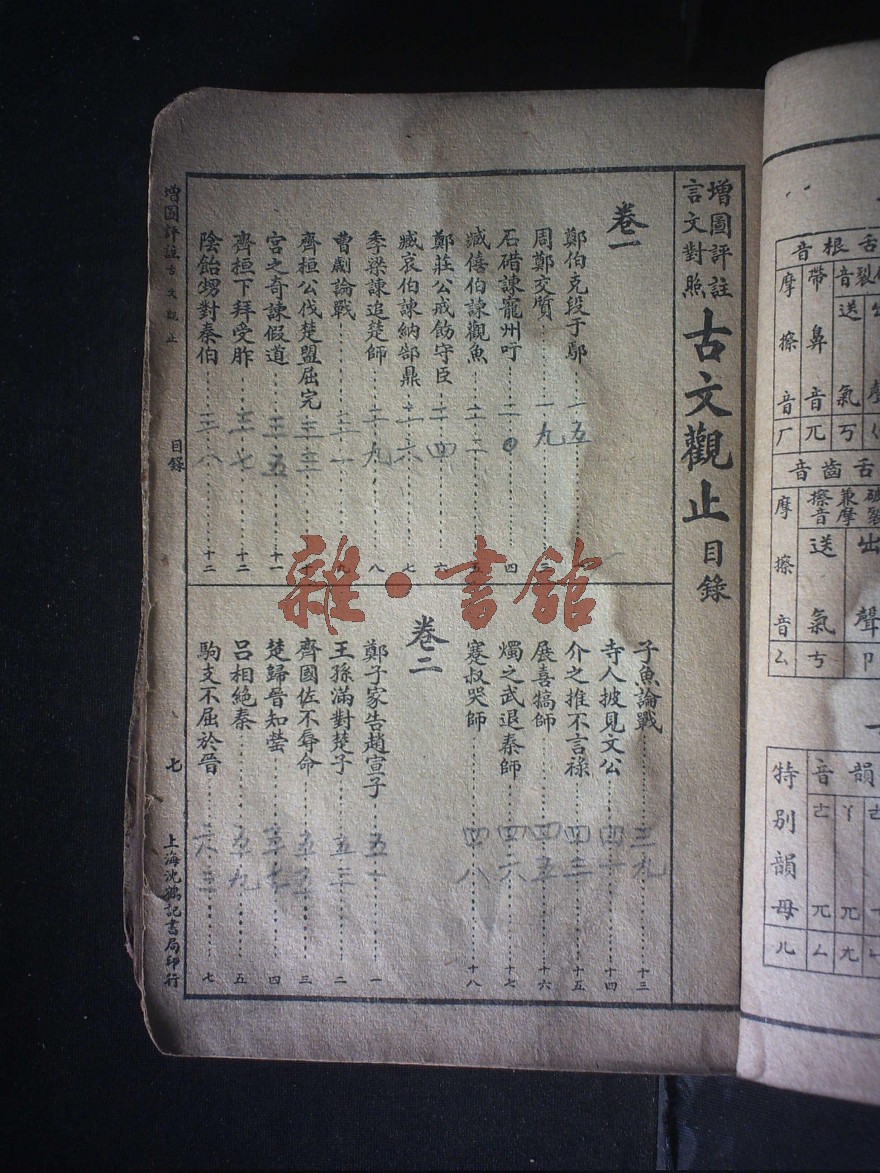 增圖評註
言文對照
古文觀止目錄
卷一
鄭伯克段于鄢 一五
周鄭交質 一九 二
石碏諫寵州吁 二〇 四
臧僖伯諫觀魚 二二 五
鄭莊公戒飭守臣 二四 六
臧哀伯諫納郜鼎 二六 七
季梁諫追楚師 二九 八
曹劌論戰 三一 九
齊桓公伐楚盟屈完 三三 十
宮之奇諫假道 三五 十一
齊桓下拜受胙 三七 十二
陰飴甥對秦伯 三八 十二
子魚論戰 三九 十三
寺人披見文公 四十 十四
介之推不言祿 四三 十五
展喜犒師 四五 十六
燭之武退秦師 四六 十七
蹇叔哭師 四八 十八
卷二
鄭子家告趙宣子 五一 一
王孫滿對楚子 五三 二
齊國佐不辱命 五五 三
楚歸晉知罃 五七 四
呂相絕秦 五九 五
駒支不屈於晉 六三 七
增圖評註古文觀止
目錄
七
上海沈鶴記書局印行
雜·書館
舌根音
摩擦音
帶鼻音
送氣
厂
兀
丂
舌齒音
摩擦音
兼摩擦音
送氣
出聲
ㄙ
ㄘ
ㄗ
音韻
特別韻母
ㄦ